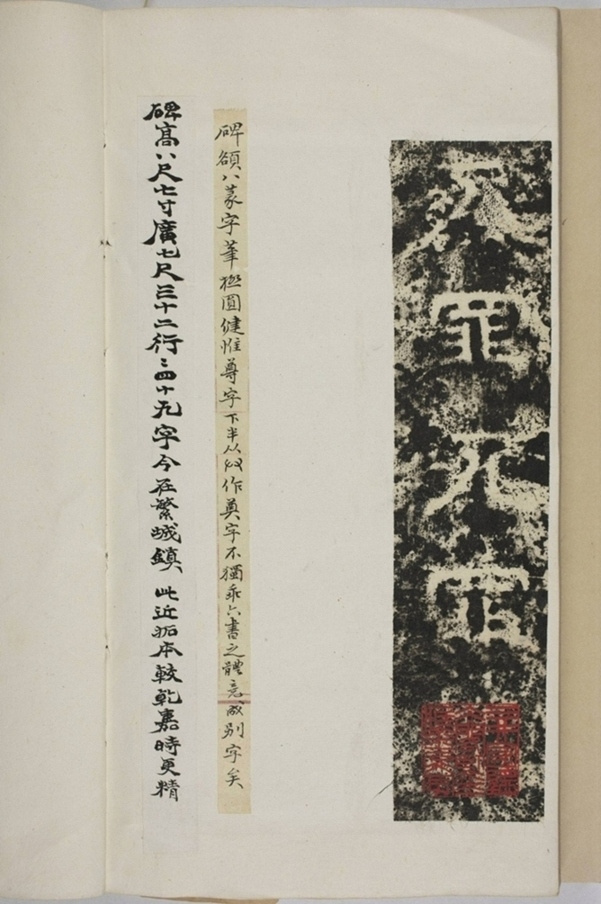 碑額八篆字筆極圓健惟尊字下半从収作奠字不獨乖六書之體竟成別字矣
碑高八尺七寸廣七尺三十二行〻四十九字今在繁城鎮 此近拓本較乾嘉時更精